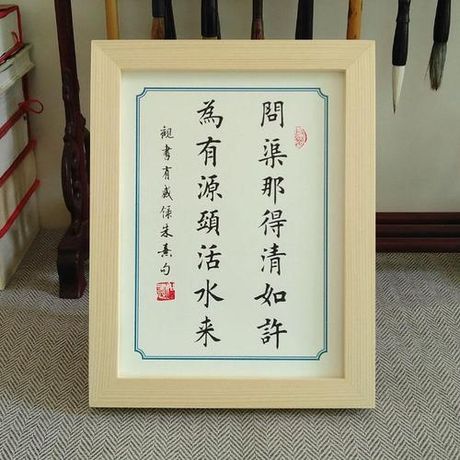 問渠那得清如許
為有源頭活水来
觀書有感録朱熹句